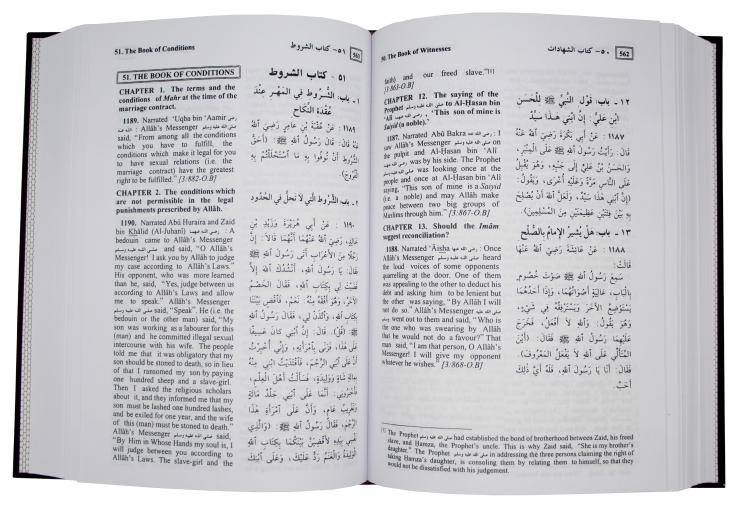 51. The Book of Conditions
561
٥١- كتاب الشروط
51. THE BOOK OF CONDITIONS
CHAPTER 1. The terms and the
conditions of Mahr at the time of the
marriage contract.
1189. Narrated 'Uqba bin 'Aamir رضي الله عنه
: Allâh's Messenger صلى الله عليه وسلم
said, "From among all the conditions
which you have to fulfill, the
conditions which make it legal for you
to have sexual relations (i.e. the
marriage contract) have the greatest
right to be fulfilled." [3:882-O.B]
CHAPTER 2. The conditions which
are not permissible in the legal
punishments prescribed by Allâh.
1190. Narrated Abû Huraira and Zaid
bin Khâlid (Al-Juhanî) رضي الله عنهما : A
bedouin came to Allâh's Messenger
صلى الله عليه وسلم and said, "O Allâh's
Messenger! I ask you by Allâh to judge
my case according to Allâh's Laws."
His opponent, who was more learned
than he, said, "Yes, judge between us
according to Allâh's Laws and allow
me to speak." Allâh's Messenger
صلى الله عليه وسلم said, "Speak." He (i.e. the
bedouin or the other man) said, "My
son was working as a labourer for this
(man) and he committed illegal sexual
intercourse with his wife. The people
told me that it was obligatory that my
son should be stoned to death, so in lieu
of that I ransomed my son by paying
one hundred sheep and a slave-girl.
Then I asked the religious scholars
about it, and they informed me that my
son must be lashed one hundred lashes,
and be exiled for one year, and the wife
of this (man) must be stoned to death."
Allâh's Messenger صلى الله عليه وسلم said,
"By Him in Whose Hands my soul is, I
will judge between you according to
Allâh's Laws. The slave-girl and the
٥١ - كتاب الشروط
١ - باب: الشُّرُوط فِي المَهْرِ عِنْدَ
عُقْدَةِ النِّكَاحِ
١١٨٩ : عَنْ عُقْبَةَ بْنِ عامِرٍ رَضِيَ اللَّهُ
عَنْهُ قَالَ: قَالَ رَسُولُ اللهِ ﷺ: (أَحَقُّ
الشُّرُوطِ أَنْ تُوفُوا بِهِ مَا اسْتَحْلَلْتُمْ بِهِ
الْفُرُوجَ).
٢ - باب: الشُّرُوطِ الَّتِي لاَ تَحِلُّ فِي الحُدُودِ
١١٩٠ : عَنْ أَبِي هُرَيْرَةَ وَزَيْدِ بْنِ
خَالِدٍ رَضِيَ اللَّهُ عَنْهُمَا أَنَّهُمَا قَالاَ: إِنَّ
رَجُلًا مِنَ الأَعْرَابِ أَتَى رَسُولَ اللهِ ﷺ
فَقَالَ: يَا رَسُولَ اللهِ، أَنْشُدُكَ اللهَ إِلَّا
قَضَيْتَ لِي بِكِتَابِ اللهِ، فَقَالَ الخَصْمُ
الآخَرُ، وَهُوَ أَفْقَهُ مِنْهُ: نَعَمْ، فَاقْضِ بَيْنَنَا
بِكِتَابِ اللهِ، وَائْذَنْ لِي، فَقَالَ رَسُولُ اللهِ
ﷺ: (قُلْ). قَالَ: إِنَّ ابْنِي كَانَ عَسِيفًا
عَلَى هَذَا، فَزَنَى بِامْرَأَتِهِ، وَإِنِّي أُخْبِرْتُ
أَنَّ عَلَى ابْنِي الرَّجْمَ، فَافْتَدَيْتُ مِنْهُ
بِمِائَةِ شَاةٍ وَوَلِيدَةٍ، فَسَأَلْتُ أَهْلَ الْعِلْمِ،
فَأَخْبَرُونِي: أَنَّمَا عَلَى ابْنِي جَلْدُ مِائَةٍ
وَتَغْرِيبُ عَامٍ، وَأَنَّ عَلَى امْرَأَةِ هَذَا
الرَّجْمَ، فَقَالَ رَسُولُ اللهِ ﷺ: (وَالَّذِي
نَفْسِي بِيَدِهِ لأَقْضِيَنَّ بَيْنَكُمَا بِكِتَابِ اللهِ،
الْوَلِيدَةُ وَالْغَنَمُ رَدٌّ عَلَيْكَ، وَعَلَى ابْنِكَ
50. The Book of Witnesses
٥٠- كتاب الشهادات
562
faith) and our freed slave."[1]
[3:863-O.B]
CHAPTER 12. The saying of the
Prophet صلى الله عليه وسلم to Al-Hasan bin
'Ali رضي الله عنهما , "This son of mine is
Saiyid (a noble)."
1187. Narrated Abû Bakra رضي الله عنه : I
saw Allâh's Messenger صلى الله عليه وسلم on
the pulpit and Al-Hasan bin 'Alî
رضي الله عنهما was by his side. The Prophet
صلى الله عليه وسلم was looking once at the
people and once at Al-Hasan bin 'Alî
saying, "This son of mine is a Saiyid
(i.e. a noble) and may Allâh make
peace between two big groups of
Muslims through him." [3:867-O.B]
CHAPTER 13. Should the Imâm
suggest reconciliation?
1188. Narrated 'Âisha رضي الله عنها : Once
Allâh's Messenger صلى الله عليه وسلم heard
the loud voices of some opponents
quarrelling at the door. One of them
was appealing to the other to deduct his
debt and asking him to be lenient but
the other was saying, "By Allâh I will
not do so." Allâh's Messenger صلى الله عليه
وسلم went out to them and said, "Who is
the one who was swearing by Allâh
that he would not do a favour?" That
man said, "I am that person, O Allâh's
Messenger! I will give my opponent
whatever he wishes." [3:868-O.B]
١٢ - باب: قَوْلُ النَّبِيِّ ﷺ لِلْحَسَنِ
ابْنِ عَلِيٍّ: إِنَّ ابْنِي هَـذَا سَيِّدٌ
١١٨٧ : عَنْ أَبِي بَكْرَةَ رَضِيَ اللَّهُ عَنْهُ
قَالَ: رَأَيْتُ رَسُولَ اللهِ ﷺ عَلَى المِنْبَرِ،
وَالحَسَنُ بْنُ عَلِيٍّ إِلَى جَنْبِهِ، وَهُوَ يُقْبِلُ
عَلَى النَّاسِ مَرَّةً وَعَلَيْهِ أُخْرَى، وَيَقُولُ:
(إِنَّ ابْنِي هَذَا سَيِّدٌ، وَلَعَلَّ اللهَ أَنْ يُصْلِحَ
بِهِ بَيْنَ فِئَتَيْنِ عَظِيمَتَيْنِ مِنَ المُسْلِمِينَ).
١٣ - باب: هَلْ يُشِيرُ الإِمَامُ بِالصُّلْحِ
١١٨٨ : عَنْ عَائِشَةَ رَضِيَ اللَّهُ عَنْهَا
قَالَتْ:
سَمِعَ رَسُولُ اللهِ ﷺ صَوْتَ خُصُومٍ
بِالْبَابِ، عَالِيَةٍ أَصْوَاتُهُمَا، وَإِذَا أَحَدُهُمَا
يَسْتَوْضِعُ الآخَرَ وَيَسْتَرْفِقُهُ فِي شَيْءٍ،
وَهُوَ يَقُولُ: وَاللهِ لَا أَفْعَلُ، فَخَرَجَ
عَلَيْهِمَا رَسُولُ اللهِ ﷺ فَقَالَ: (أَيْنَ
المُتَأَلِّي عَلَى اللهِ لَا يَفْعَلُ المَعْرُوفَ).
فَقَالَ: أَنَا يَا رَسُولَ اللهِ، فَلَهُ أَيُّ ذَلِكَ
أَحَبَّ
[1] The Prophet صلى الله عليه وسلم had established the bond of brotherhood between Zaid, his freed
slave, and Hamza, the Prophet's uncle. This is why Zaid said, "She is my brother's
daughter." The Prophet صلى الله عليه وسلم in addressing the three persons claiming the right of
taking Hamza's daughter, is consoling them by relating them to himself, so that they
would not be dissatisfied with his judgement.